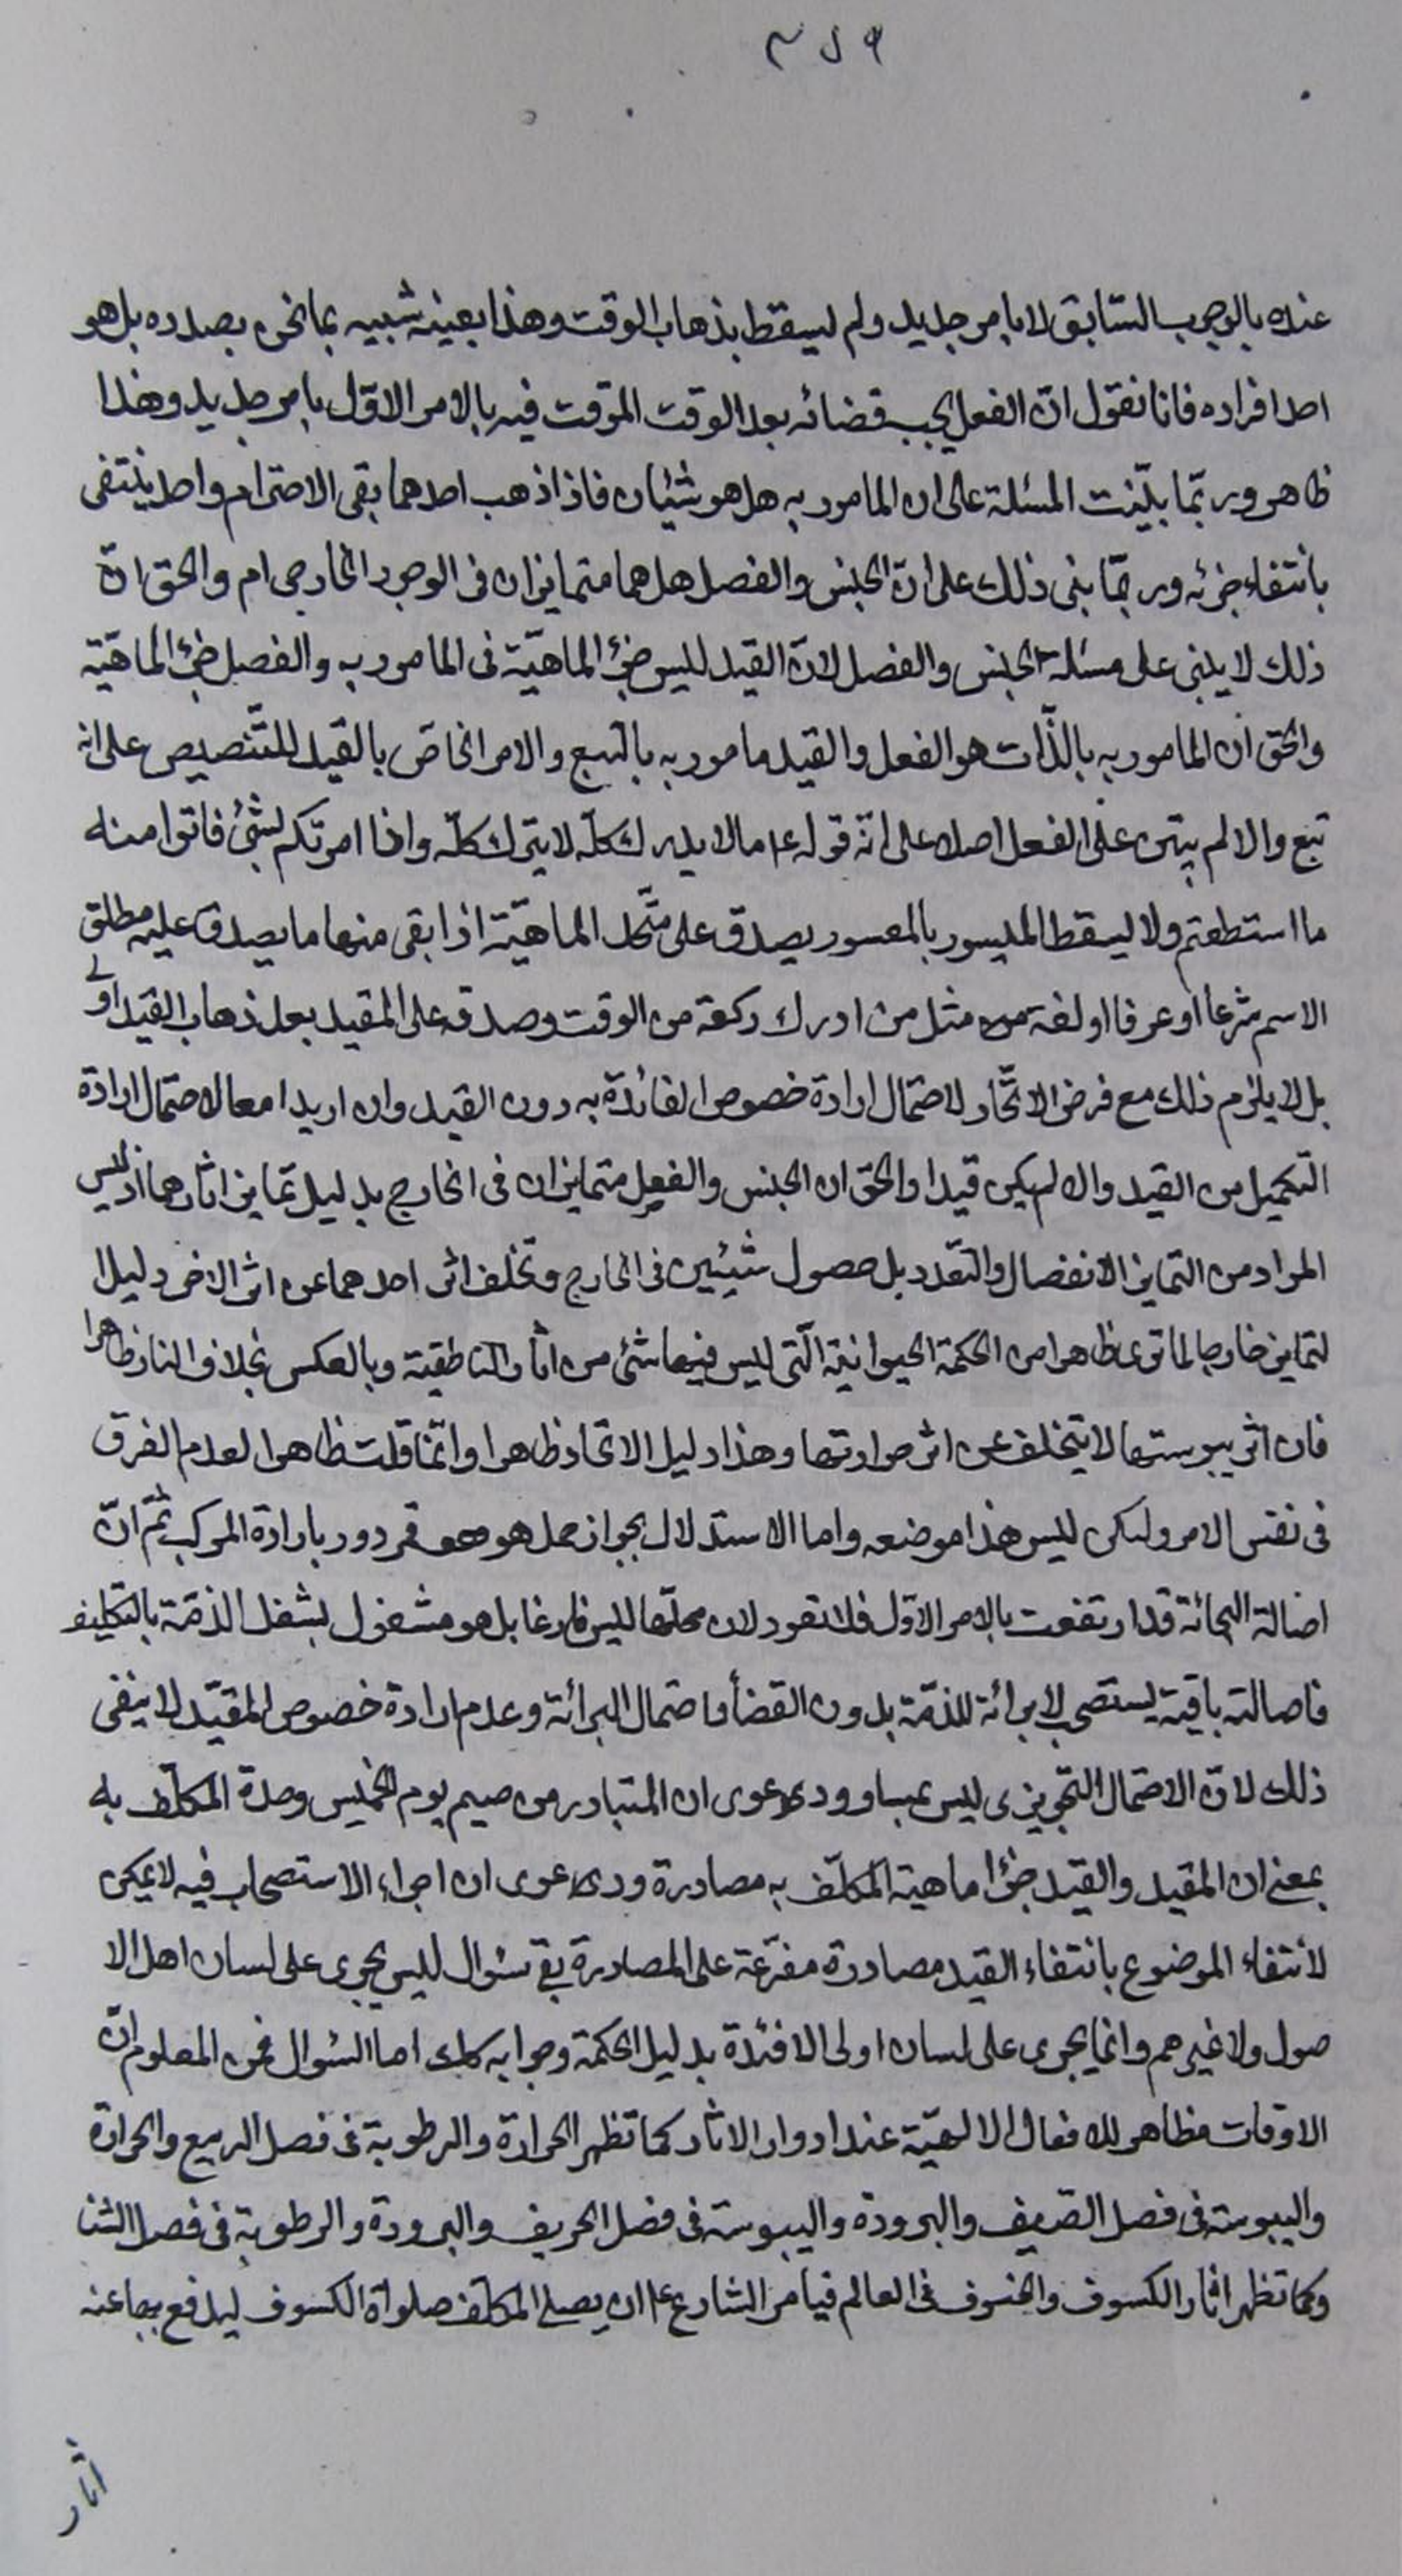 عنده بالوجوب السّابق لا بامر جديد ولم يسقط بذهاب الوقت وهذا بعينه شبيه بما نحن بصدده بل هو
احد افراده فانا نقول انّ الفعل يجب قضائه بعد الوقت الموقت فيه بالامر الاوّل بامر جديد وهذا
ظاهر وربّما بنيت المسئلة على ان المامور به هل هو شيئان فاذا ذهب احدهما بقى الاخر ام واحد ينتفى
بانتفاء جزئه وربمّا بنى ذلك على انّ الجنس والفصل هل هما متمايزان فى الوجود الخارجى ام والحق انّ
ذلك لا يبنى على مسئلة الجنس والفصل لانّ القيد ليس جزء الماهيّة فى المامور به والفصل جزء الماهيّة
والحق ان المامور به بالذّات هو الفعل والقيد مامور به بالتبع والامر الخاصّ بالقيد للتّنصيص على انه
تبع والا لم يبتن على الفعل اصلا على انّ قوله ع ما لا يدرك كلّه لا يترك كلّه واذا امرتكم بشئ فاتوا منه
ما استطعتم ولا يسقط الميسور بالمعسور يصدق على متّحد الماهيّة اذا بقى منها ما يصدق عليه مطلق
الاسم شرعا او عرفا او لغة مثل من ادرك ركعة من الوقت وصدقه على المقيد بعد ذهاب القيد اولى
بل لا يلزم ذلك مع فرض الاتّحاد لاحتمال ارادة خصوص الفائدة به دون القيد وان اريدا معا لاحتمال ارادة
التكميل من القيد والا لم يكن قيدا والحق ان الجنس والفصل متمايزان فى الخارج بدليل تمايز اثارهما اذ ليس
المراد من التمايز الانفصال والتعّدد بل حصول شيئين فى الخارج وتخلف اثر احدهما عن اثر الاخر دليل
لتمايز خارجا لما ترى ظاهرا من الحكمة الحيوانية الّتى ليس فيها شئ من اثار الناطقية وبالعكس بخلاف النار ظاهرا
فان اثر يبوستها لا يتخلف عن اثر حرارتها وهذا دليل الاتحاد ظاهرا وانّما قلت ظاهرا لعدم الفرق
فى نفس الامر ولكن ليس هذا موضعه واما الاستدلال بجواز حمل هو هو فمردود بارادة المركب ثمّ انّ
اصالة البرائة قد ارتفعت بالامر الاوّل فلا تعود لان محلّها ليس فارغا بل هو مشغول بشغل الذمّة بالتكليف
فاصالته باقية يستصحب لا برائة للذمّة بدون القضأ واحتمال البرائة وعدم ارادة خصوص المقيّد لا ينفى
ذلك لانّ الاحتمال التّجويزى ليس بمساو ودعوى ان المتبادر من صيم يوم الخميس وحدة المكلّف به
بمعنى ان المقيد والقيد جزءا ماهية المكلّف به مصادرة ودعوى ان اجراء الاستصحاب فيه لا يمكن
لانتفاء الموضوع بانتفاء القيد مصادرة مفرّعة على المصادرة بقى سئوال ليس يجرى على لسان اهل الا
صول ولا غيرهم وانما يجرى على لسان اولى الافئدة بدليل الحكمة وجوابه كك اما السّوال فمن المعلوم انّ
الاوقات مظاهر للافعال الالهيّة عند ادوار الاثار كما تظهر الحرارة والرطوبة فى فصل الربيع والحرارة
واليبوسة فى فصل الصّيف والبرودة واليبوسة فى فصل الخريف والبرودة والرطوبة فى فصل الشتا
وكما تظهر اثار الكسوف والخسوف فى العالم فيامر الشارع ع ان يصلى المكلّف صلواة الكسوف ليدفع بها عنه
اثار